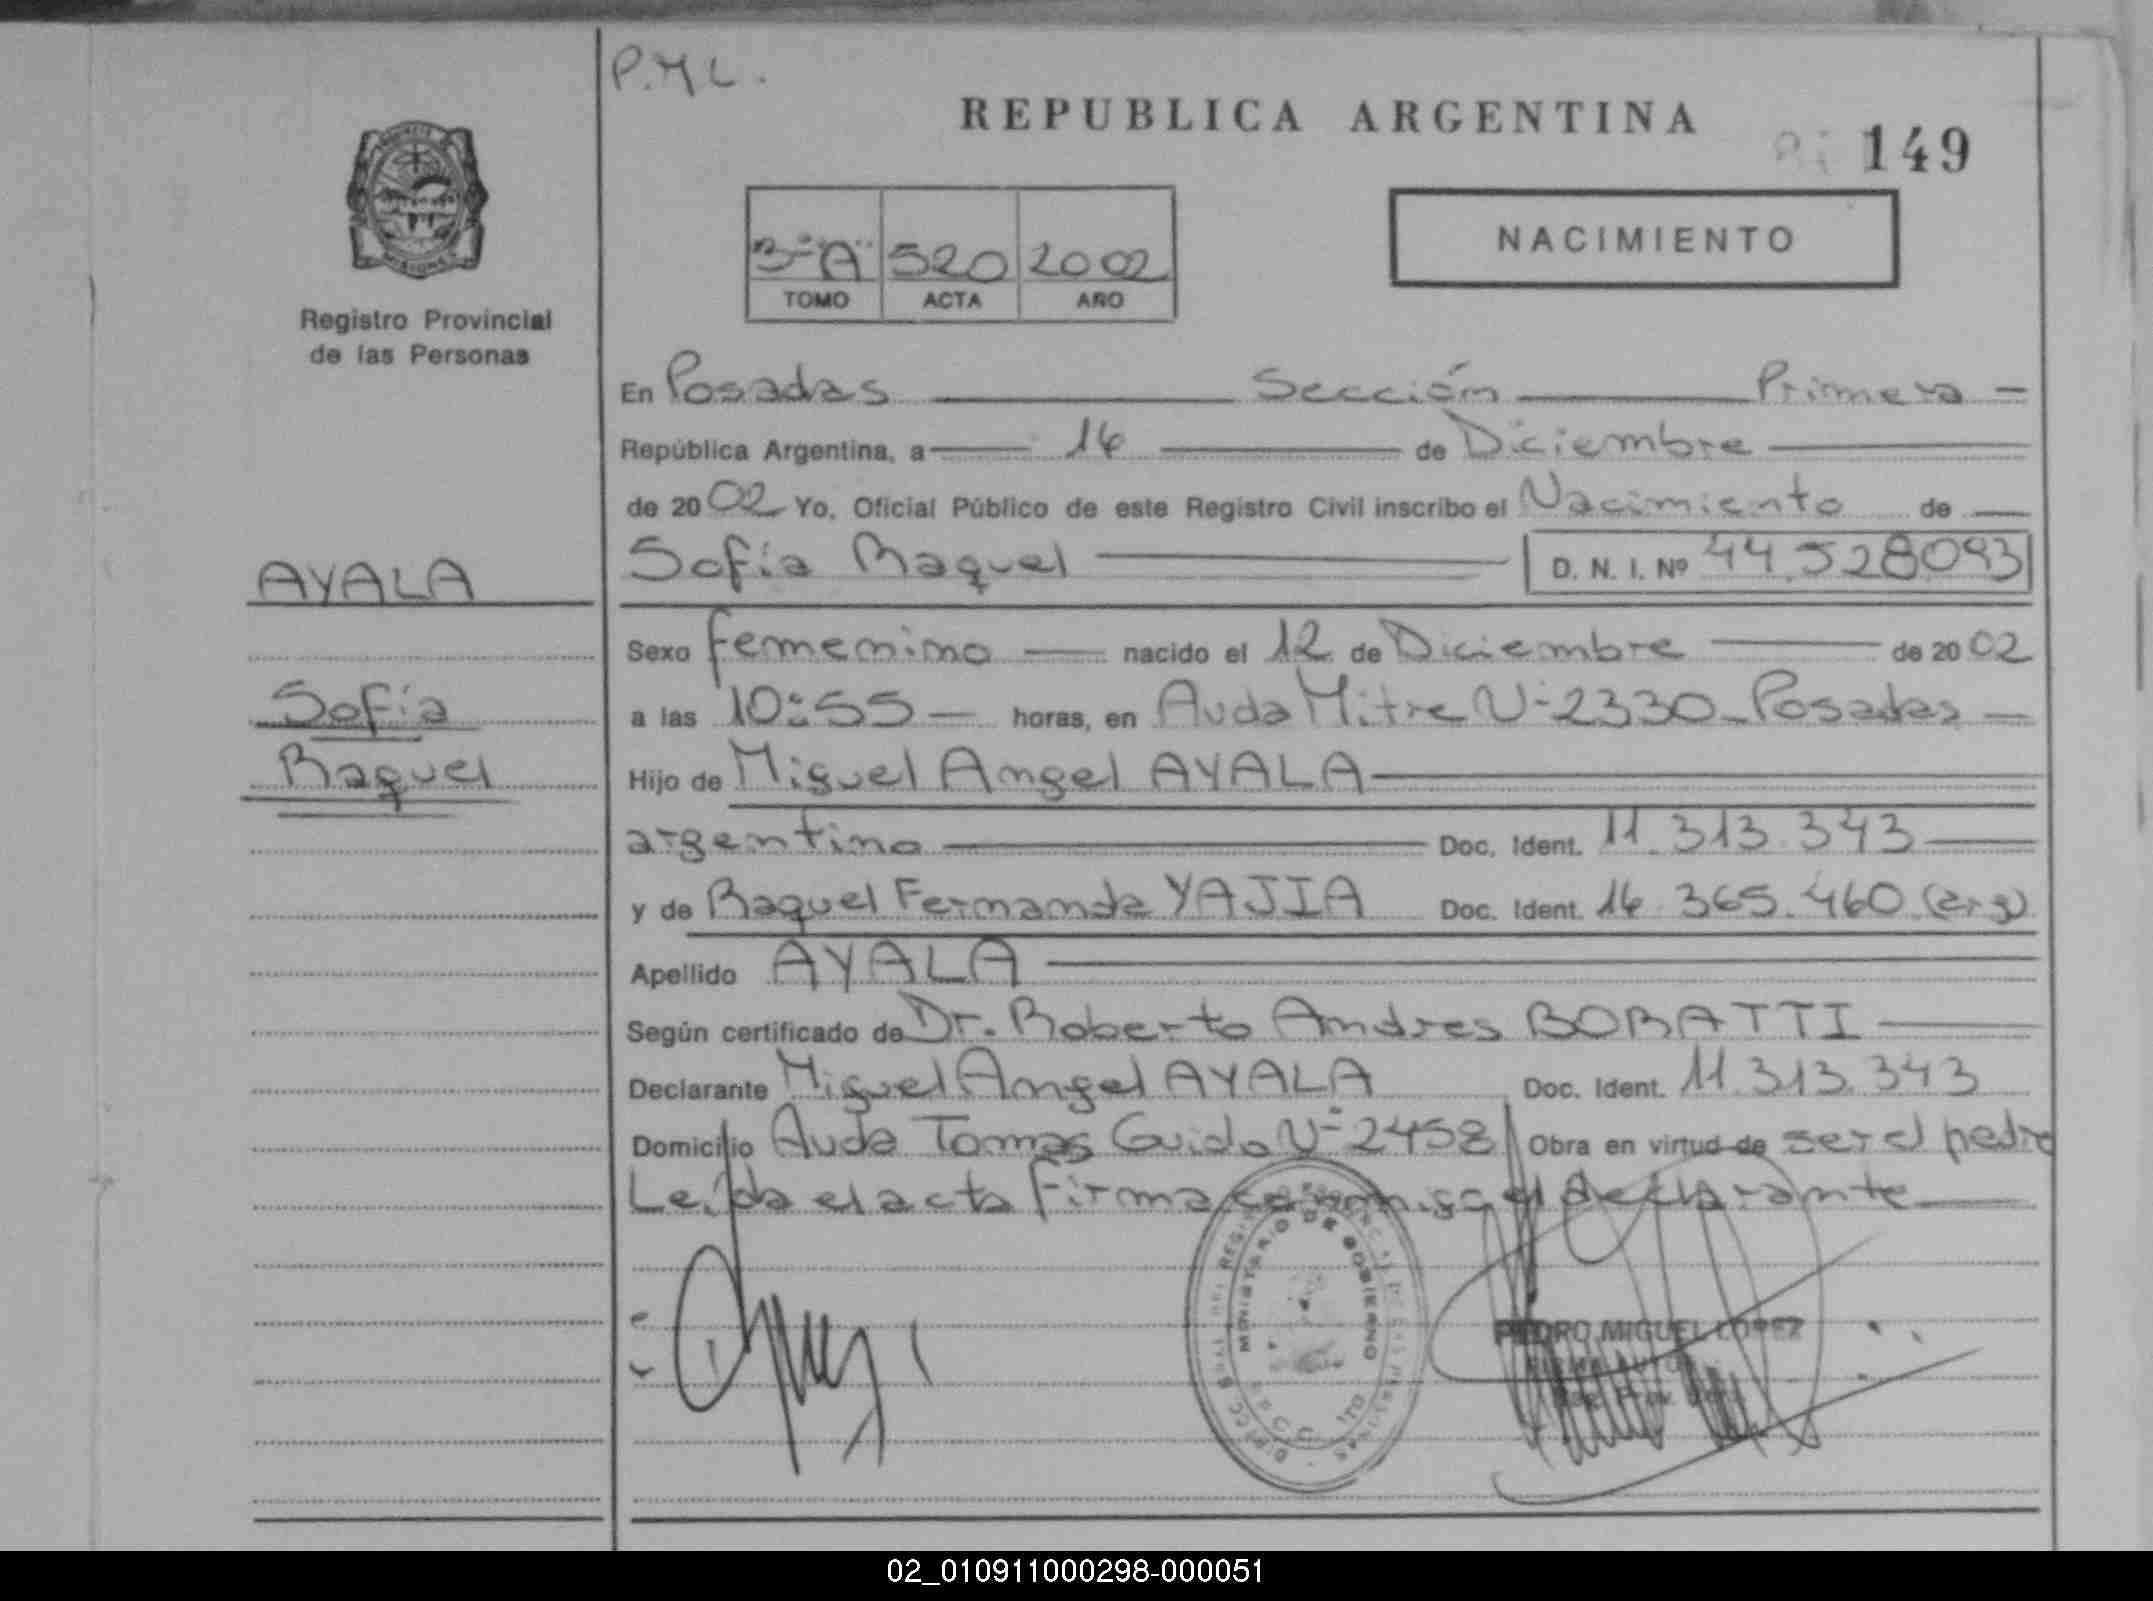 P.M L.
REPUBLICA ARGENTINA
149
NACIMIENTO
3º "A" 520 2002
TOMO ACTA AÑO
Registro Provincial
de las Personas
En Posadas Sección Primera
República Argentina, a 16 de Diciembre
de 2002 Yo, Oficial Público de este Registro Civil inscribo el Nacimiento de
Sofía Raquel D. N. I. Nº 44.528093
AYALA
Sofía
Raquel
Sexo femenino nacido el 12 de Diciembre de 2002
a las 10:55 horas, en Avda Mitre Nº 2330 - Posadas
Hijo de Miguel Angel AYALA
argentino Doc. Ident. 11.313.343
y de Raquel Fernanda YAJIA Doc. Ident. 16.365.460 (arg)
Apellido AYALA
Según certificado de Dr. Roberto Andres BORATTI
Declarante Miguel Angel AYALA Doc. Ident. 11.313.343
Domicilio Avda Tomas Guido Nº 2458 Obra en virtud de ser el padre
Leída el acta firma conmigo el declarante
MINISTERIO DE GOBIERNO
PEDRO MIGUEL LOPEZ
02_010911000298-000051